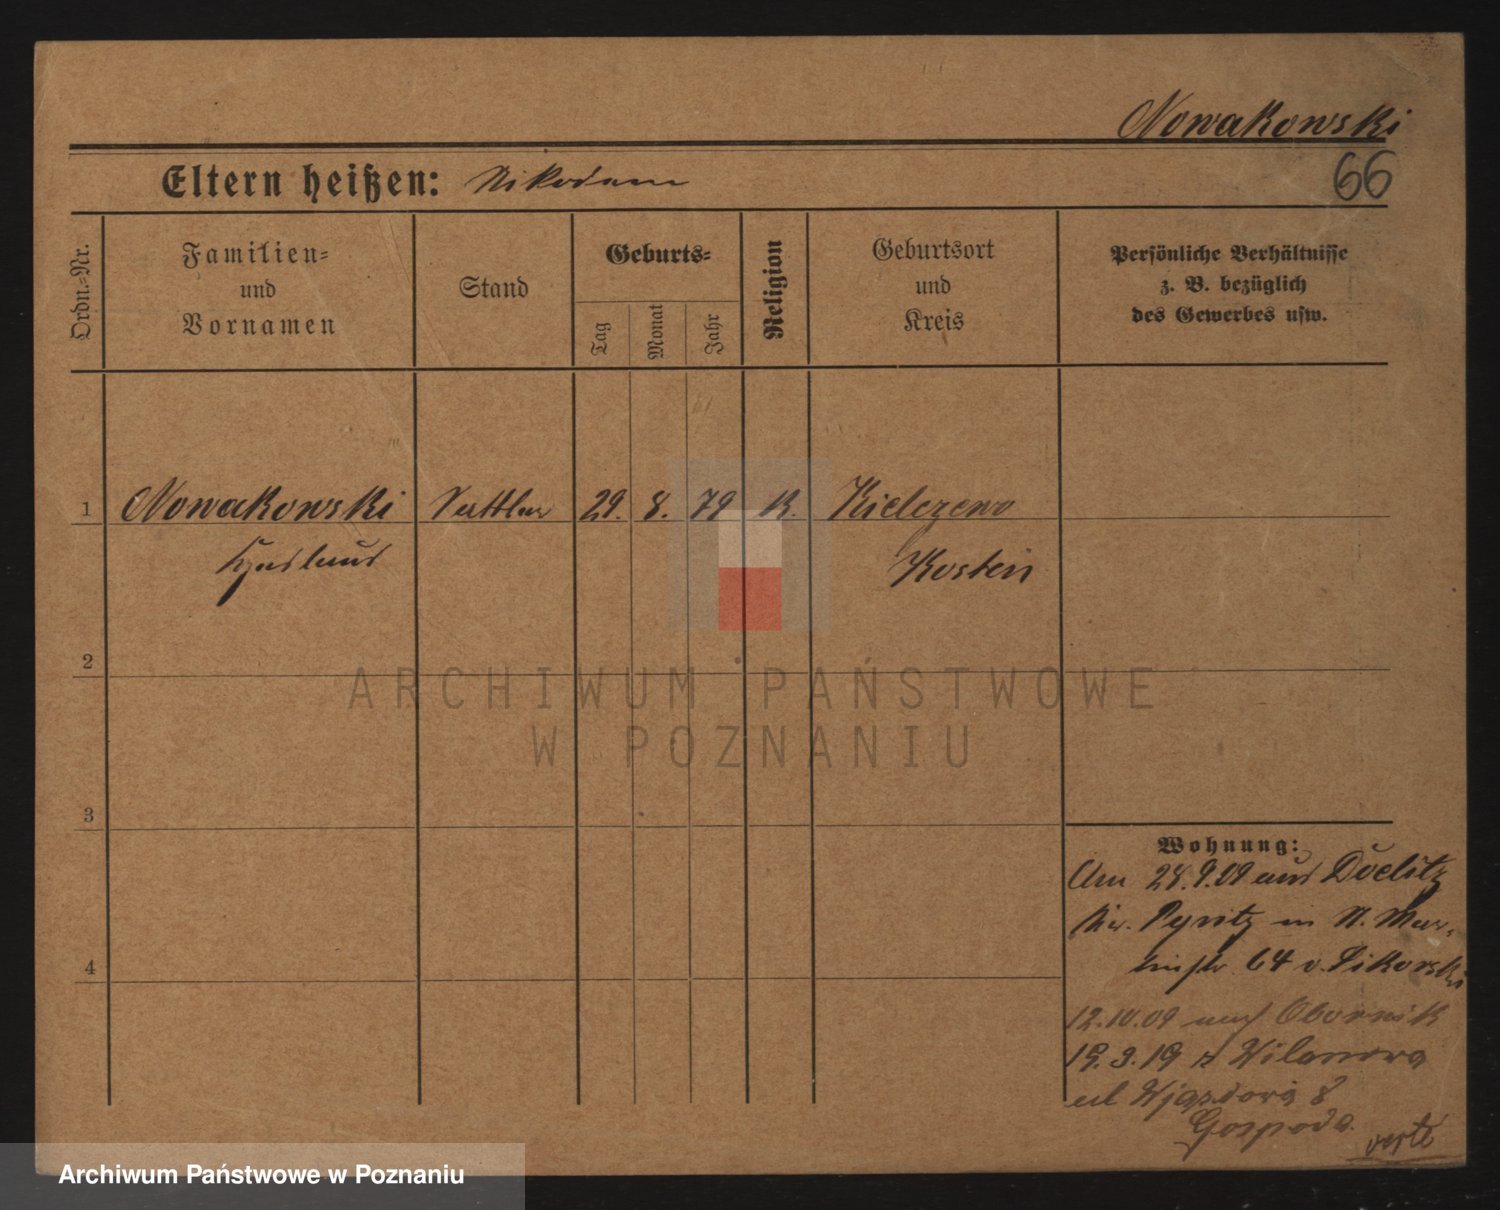 Nowakowski
Eltern heißen: Nikodem
66
Ordn.-Nr.
Familien-
und
Vornamen
Stand
Geburts-
Tag
Monat
Jahr
Religion
Geburtsort
und
Kreis
Persönliche Verhältnisse
z. B. bezüglich
des Gewerbes usw.
1 Nowakowski Sattler 29. 8. 79 K. Kielczewo
Kosten
2
3
4
ARCHIWUM PAŃSTWOWE
W POZNANIU
Wohnung:
Am 28.9.09 aus Doelitz
Kr. Pyritz in St. Mar-
tinstr. 64 v. Sikorski
12.10.09 nach Obornik
19.3.19 z Wilanowa
ul Wjazdowa 8
Gospoda.
verte
Archiwum Państwowe w Poznaniu